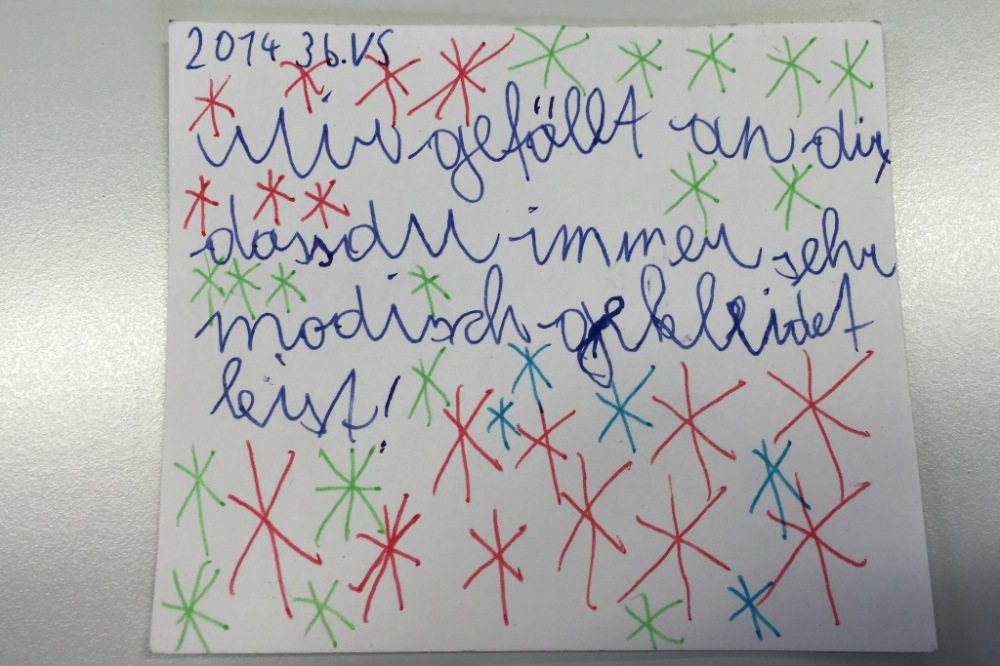 2014 3b.VS
Mir gefällt an dir,
dass du immer sehr
modisch gekleidet
bist!